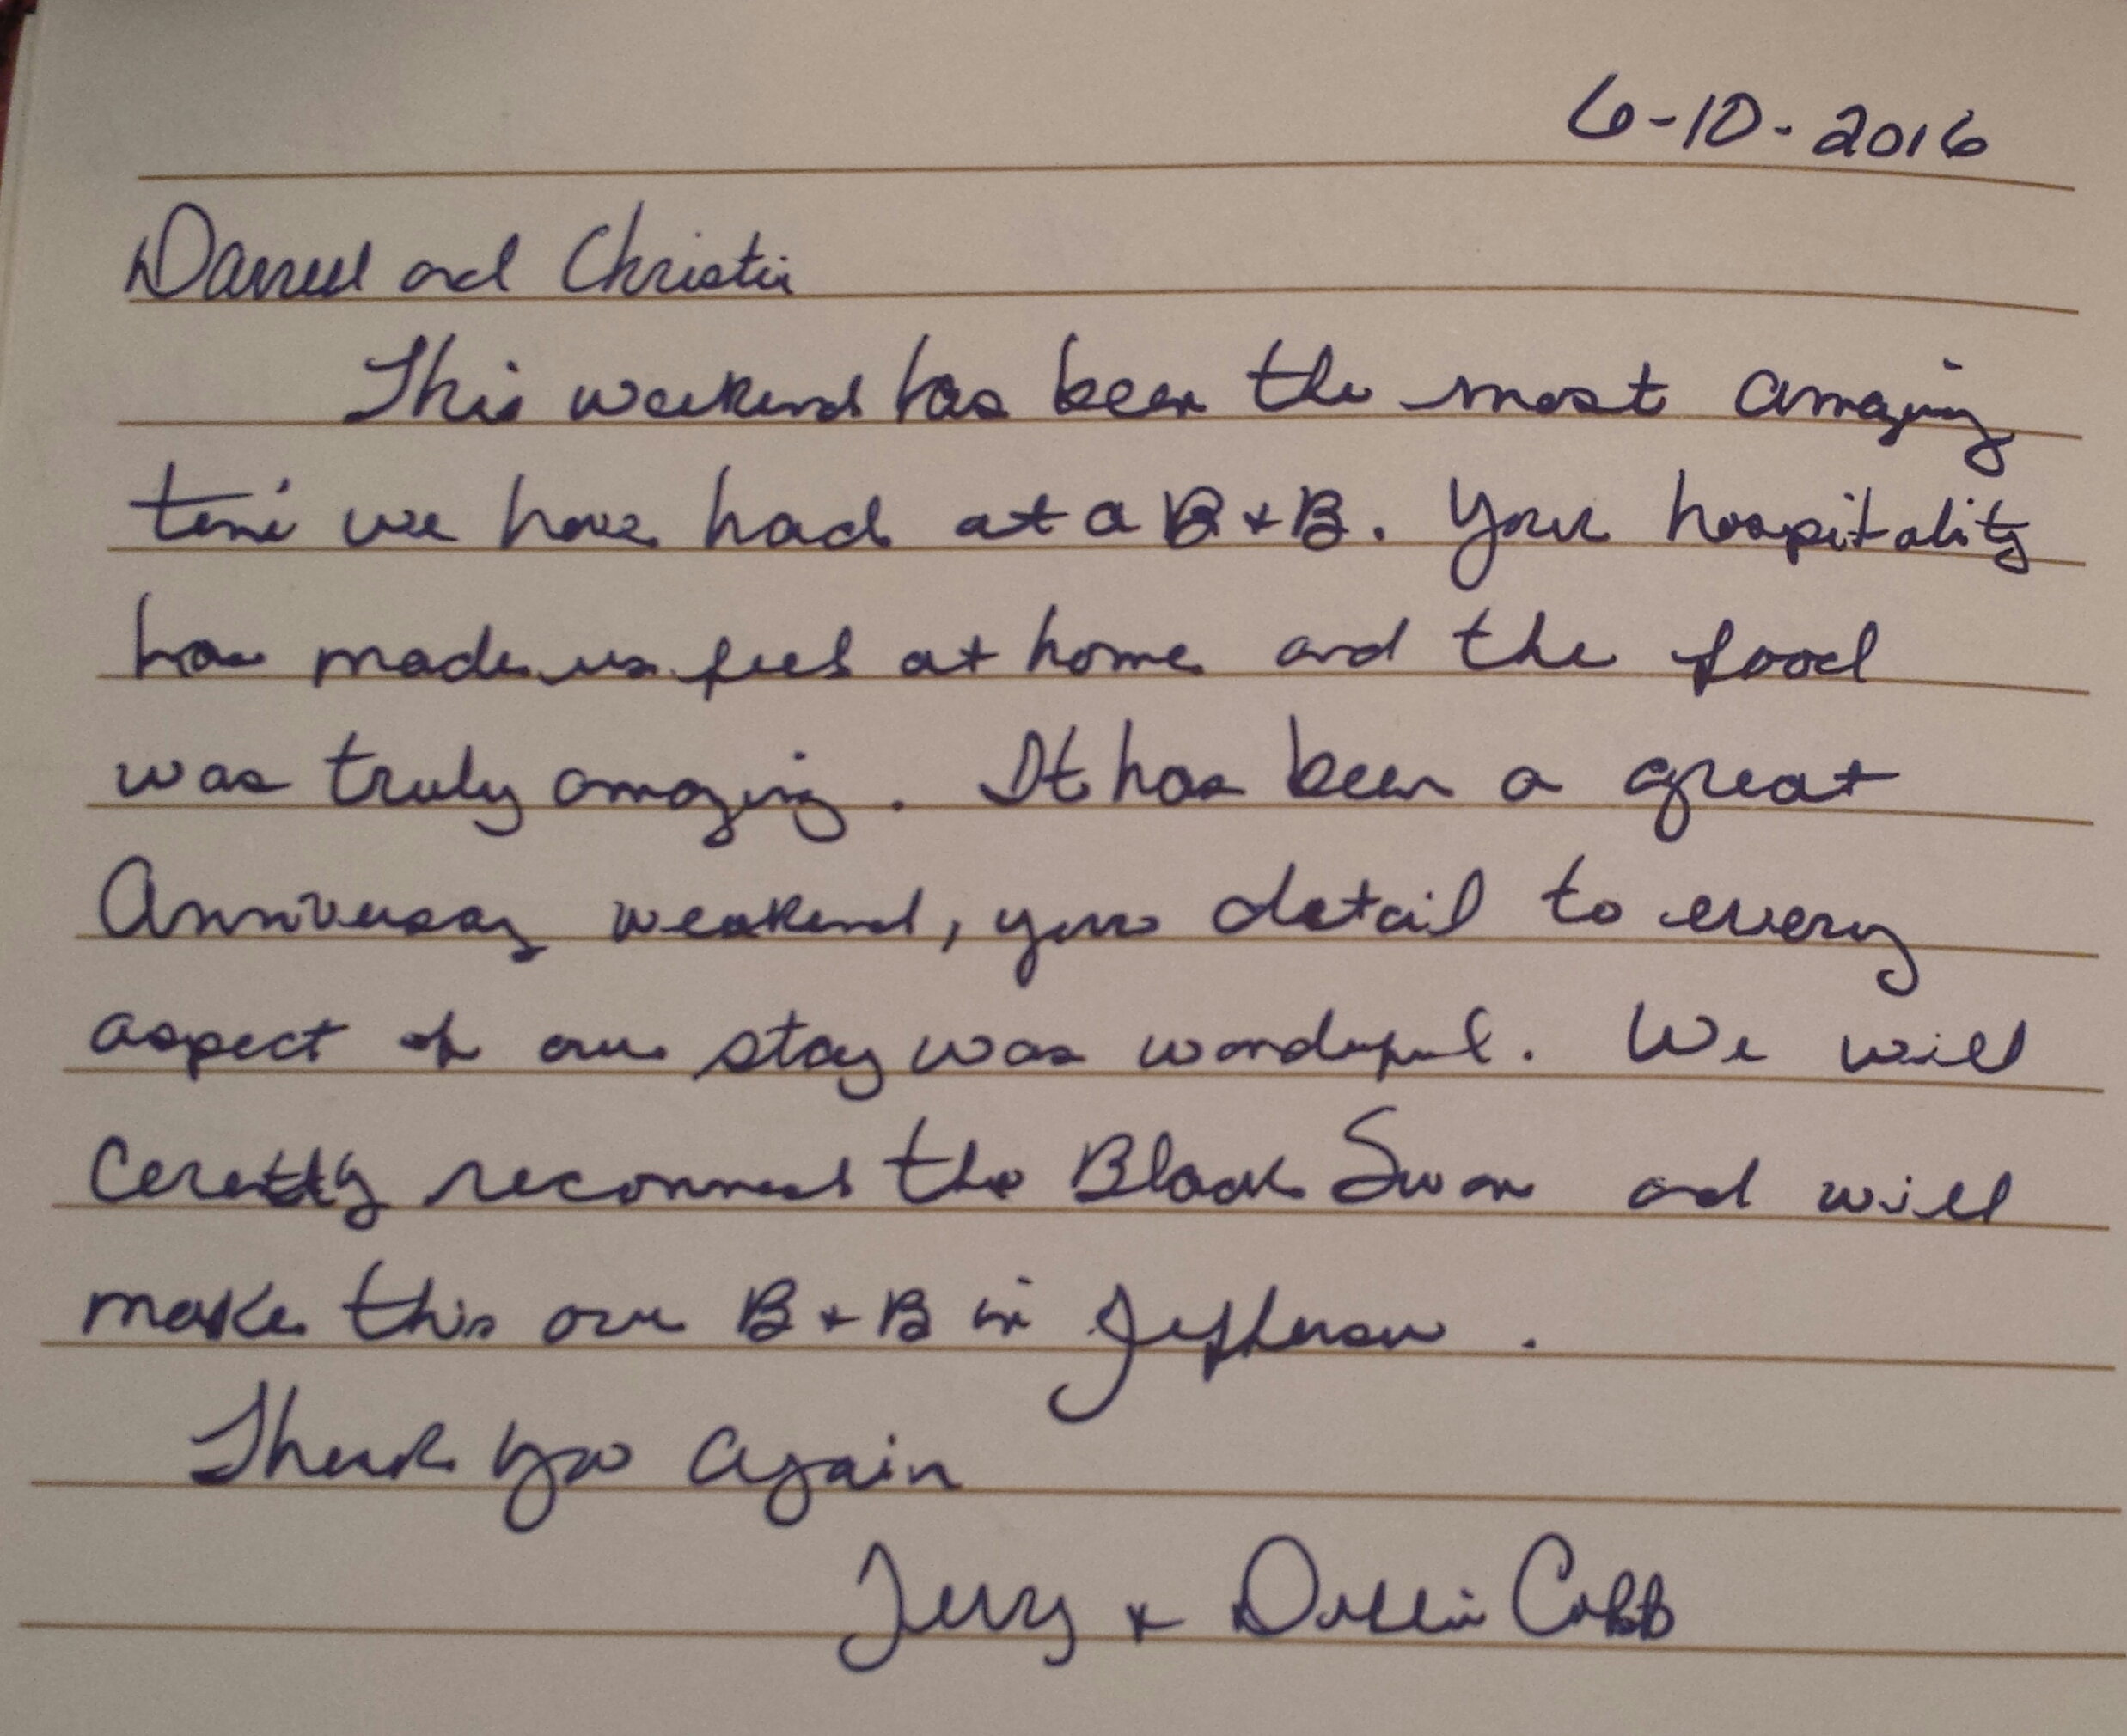 6-10-2016
Darrell and Christie
This weekend has been the most amazing
time we have had at a B+B. Your hospitality
has made us feel at home and the food
was truly amazing. It has been a great
Anniversary weekend, your detail to every
aspect of our stay was wonderful. We will
recommend the Black Swan and will
make this our B+B in Jefferson.
Thank you again
Jerry + Dollie Cobb